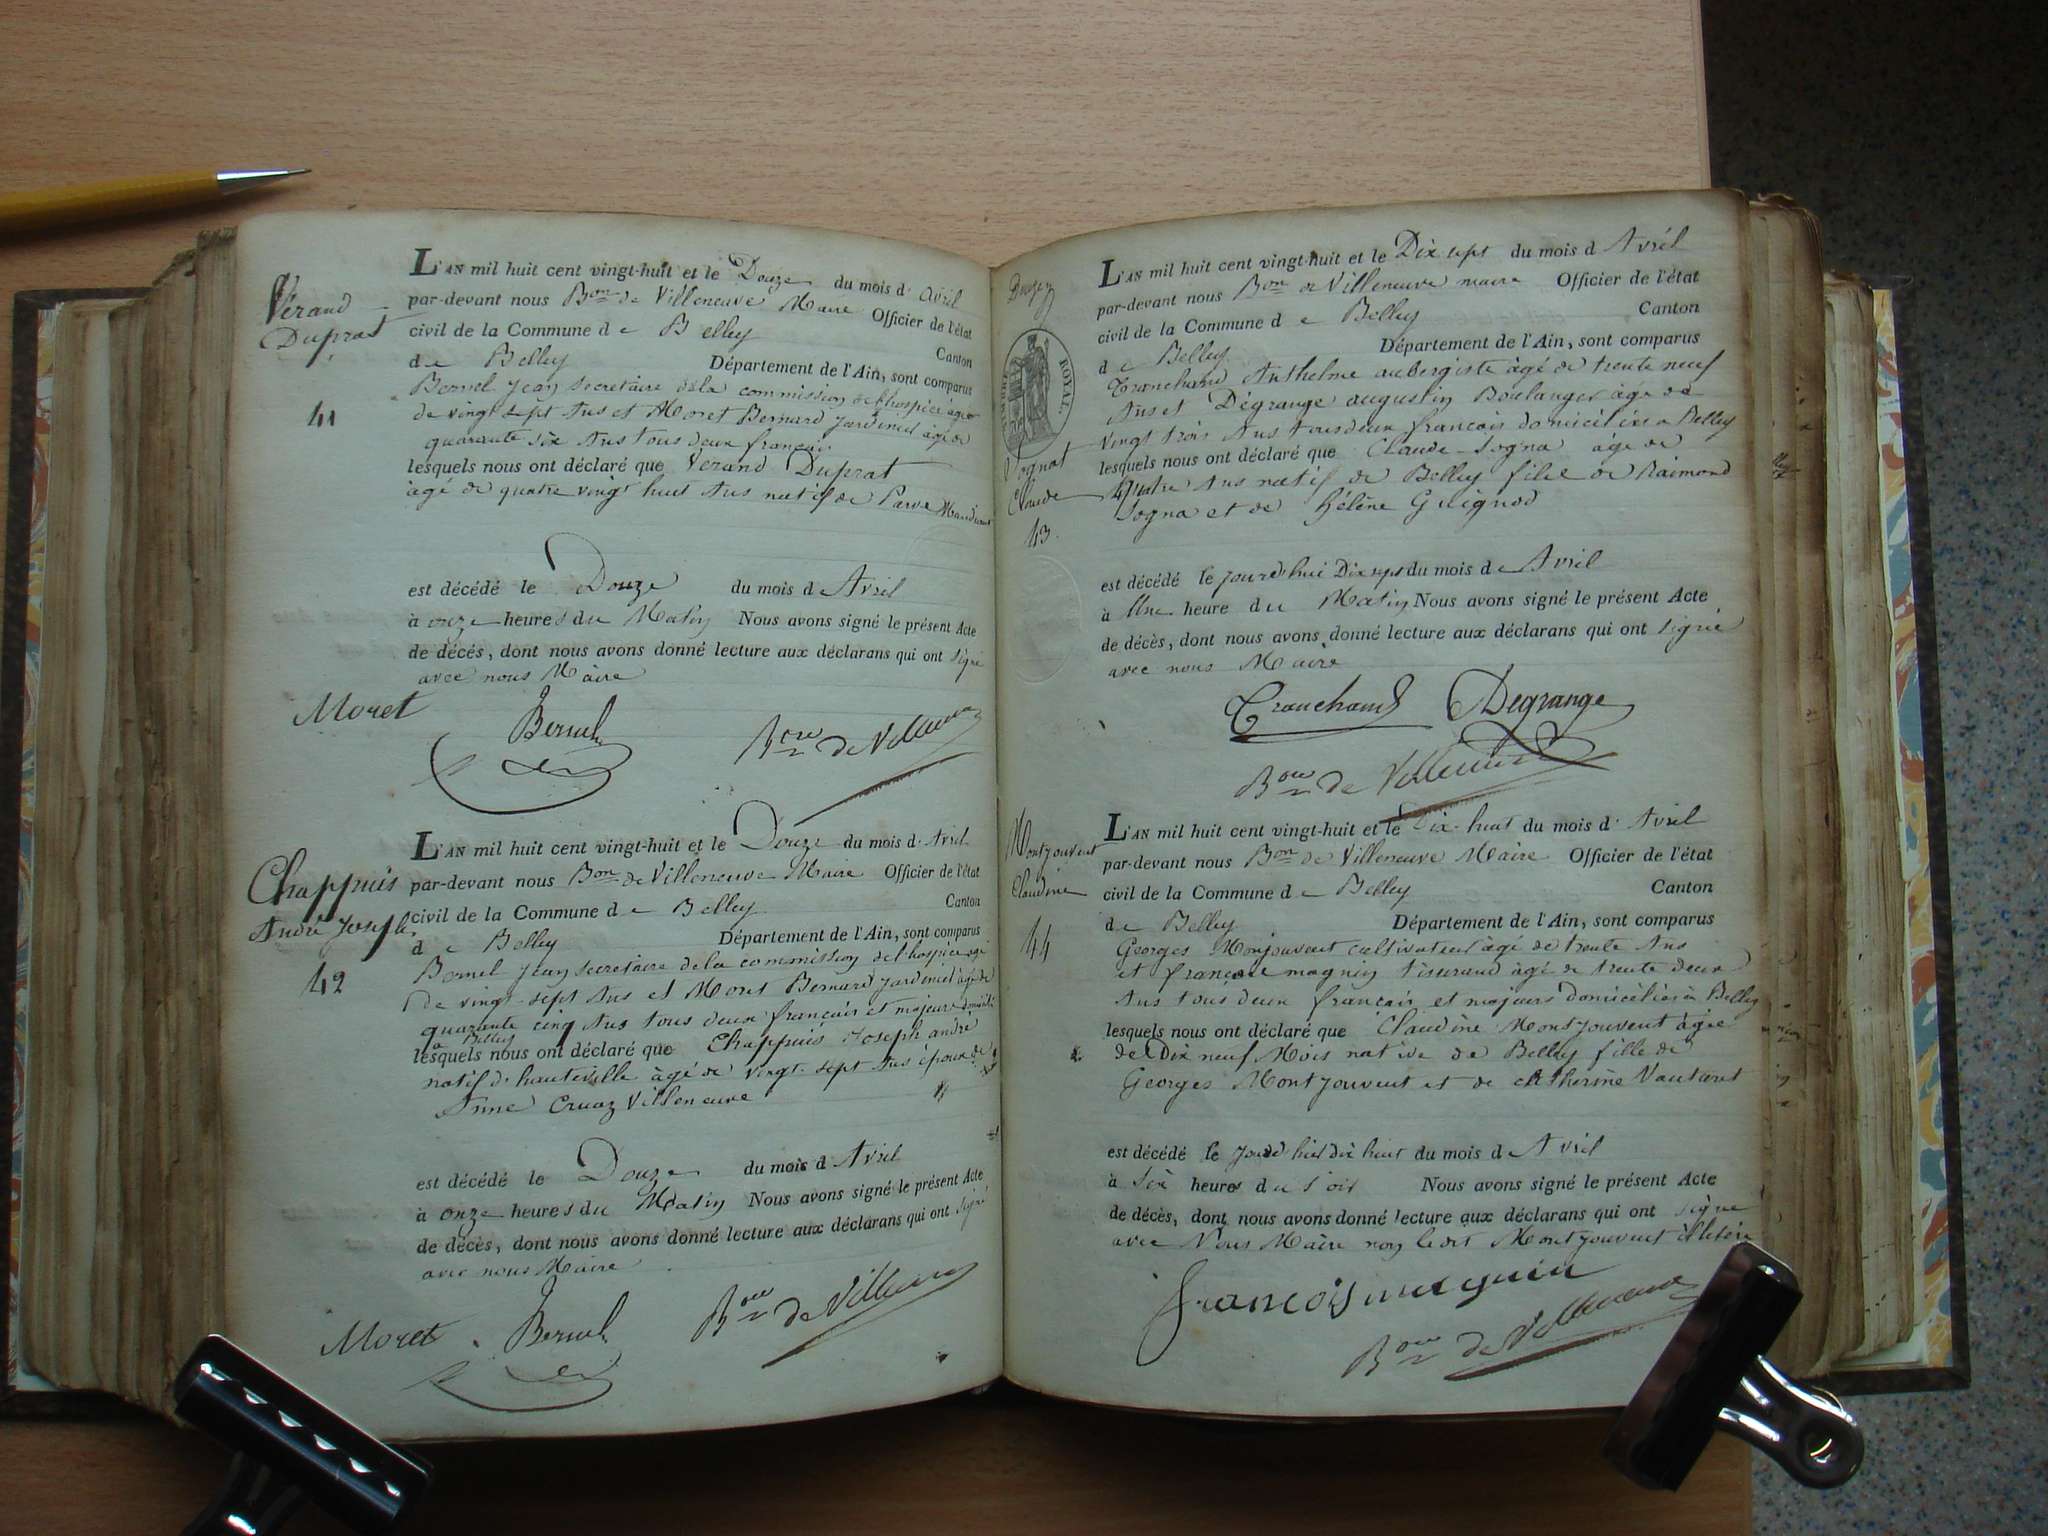 Vérand
Duprat
41
L'AN mil huit cent vingt-huit et le Douze du mois d'avril
par-devant nous Bon de Villeneuve Maire Officier de l'état
civil de la Commune de Belley Canton
de Belley Département de l'Ain, sont comparus
Bernel Jean Secretaire de la commission de l'hospice âgé
de vingt sept Ans et Moret Bernard Jardinier âgé de
quarante six Ans tous deux français
lesquels nous ont déclaré que Vérand Duprat
âgé de quatre vingt huit Ans natif de Parve
est décédé le Douze du mois d Avril
à onze heures du Matin Nous avons signé le présent Acte
de décés, dont nous avons donné lecture aux déclarans qui ont signé
avec nous Maire
Moret Bernel Bon de Villeneuve
Chappuis
André Joseph
42
L'AN mil huit cent vingt-huit et le Douze du mois d'Avril
par-devant nous Bon de Villeneuve Maire Officier de l'état
civil de la Commune de Belley Canton
de Belley Département de l'Ain, sont comparus
Bernel Jean Secretaire de la commission de l'hospice âgé
de vingt-sept Ans et Moret Bernard Jardinier âgé de
quarante cinq Ans tous deux français et majeurs domiciliés
à Belley
lesquels nous ont déclaré que Chappuis Joseph andré
natif d'hauteville âgé de vingt-sept Ans époux de
Anne Cruaz Villeneuve
est décédé le Douze du mois d Avril
à onze heures du Matin Nous avons signé le présent Acte
de décès, dont nous avons donné lecture aux déclarans qui ont signé
avec nous Maire
Moret Bernel Bon de Villeneuve
TIMBRE ROYAL
Sognat
Claude
43
L'AN mil huit cent vingt-huit et le Dix sept du mois d Avril
par-devant nous Bon de Villeneuve maire Officier de l'état
civil de la Commune de Belley Canton
de Belley Département de l'Ain, sont comparus
Tranchand Anthelme aubergiste âgé de trente neuf
Ans et Dégrange augustin Boulanger âgé de
vingt trois Ans tous deux français domiciliés à Belley
lesquels nous ont déclaré que Claude Sogna âgé de
quatre Ans natif de Belley fils de Raimond
Sogna et de hélène Guignod
est décédé le jourd'hui Dix sept du mois de Avril
à Une heure du Matin Nous avons signé le présent Acte
de décès, dont nous avons donné lecture aux déclarans qui ont signé
avec nous Maire
Tranchand Degrange
Bon de Villeneuve
Montjouvent
Claudine
44
L'AN mil huit cent vingt-huit et le Dix-huit du mois d'Avril
par-devant nous Bon de Villeneuve Maire Officier de l'état
civil de la Commune de Belley Canton
de Belley Département de l'Ain, sont comparus
Georges Monjouvent cultivateur âgé de trente Ans
et françois magnin tisserand âgé de trente deux
Ans tous deux français et majeurs domiciliés à Belley
lesquels nous ont déclaré que Claudine Montjouvent âgée
de Dix neuf Mois native de Belley fille de
Georges Montjouvent et de Catherine Vautaret
est décédé le jourd'hui dix huit du mois d Avril
à Six heures du soir Nous avons signé le présent Acte
de décès, dont nous avons donné lecture aux déclarans qui ont signé
avec Nous Maire non ledit Montjouvent illitéré
françois magnin
Bon de Villeneuve